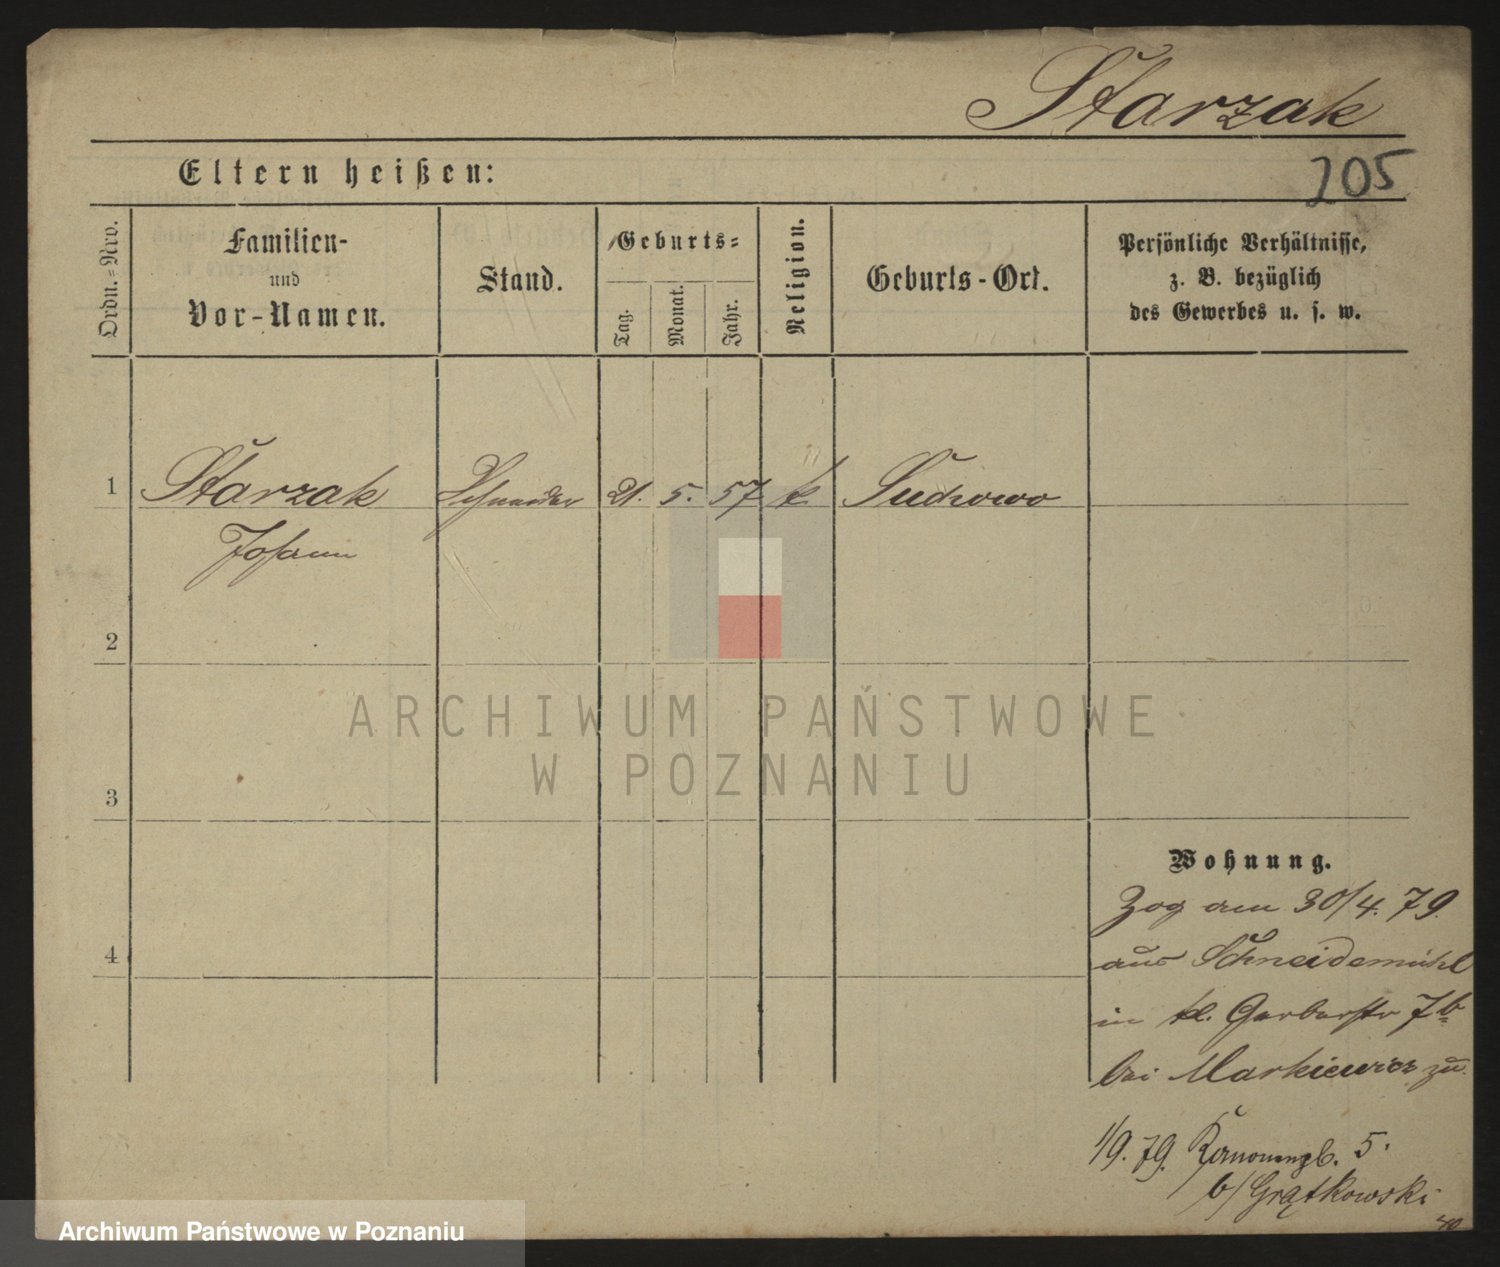 Starzak
205
Eltern heißen:
Ordn.=Nro.
Familien-
und
Vor-Namen.
Stand.
Geburts=
Tag.
Monat.
Jahr.
Religion.
Geburts-Ort.
Persönliche Verhältnisse,
z. B. bezüglich
des Gewerbes u. s. w.
1 Starzak Schneider 21. 5. 57 k. Suchowo
Johann
2
3
4
ARCHIWUM PAŃSTWOWE
W POZNANIU
Wohnung.
Zog am 30/4. 79.
aus Schneidemühl
in kl. Gerberstr 7b
bei Markiewicz zu.
1/9. 79. Kanonenpl. 5.
b/ Grątkowski
Archiwum Państwowe w Poznaniu